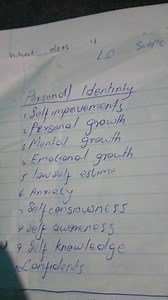 what does
LO Scope
Personal Identinty
1. Self improvements
2. Personal growth
3. Mental growth
4. Emotional growth
5. low self estime
6. Anxiety
7. Self consiowness
8. Self awareness
9. Self knowledge
Confidents